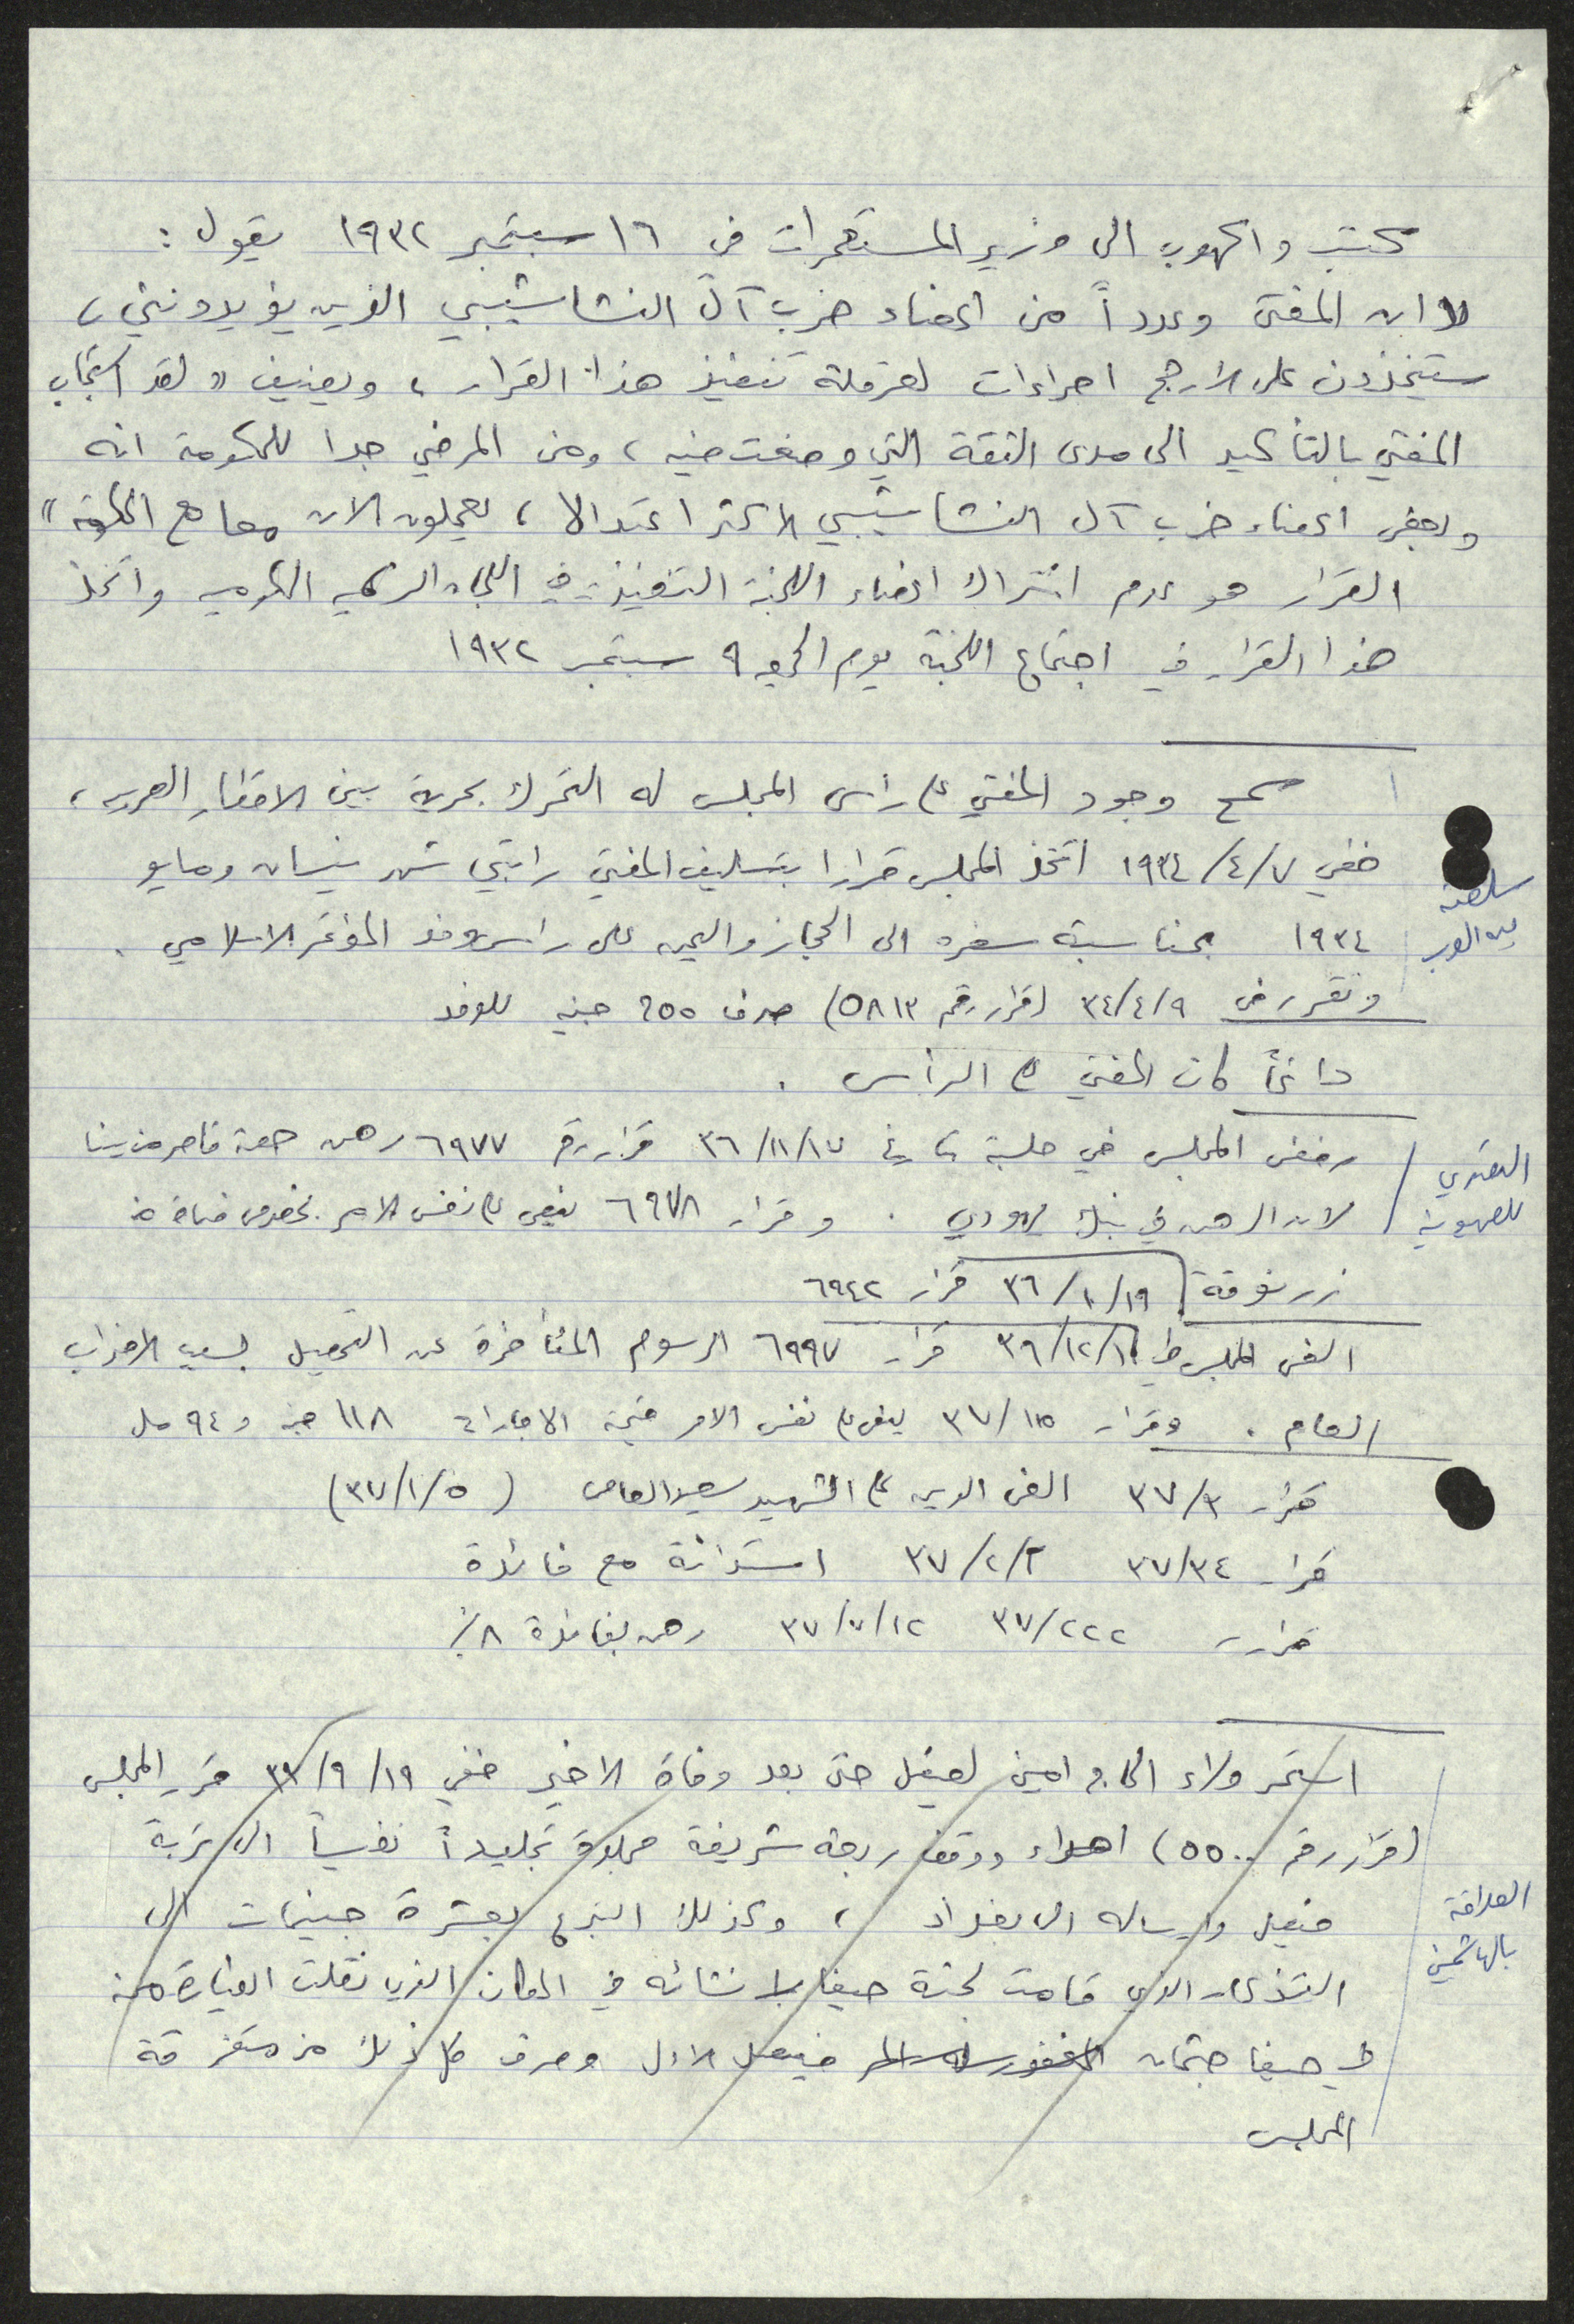 كتب واكهوب الى وزير المستعمرات في ١٦ سبتمبر ١٩٣٢ يقول :
" ان المفتي وعدداً من اعضاء حزب آل النشاشيبي الذين يؤيدونني ،
ستيخذون على الارجح اجراءات لعرقلة تنفيذ هذا القرار ، ويضيف " لقد استجاب
المفتي بالتأكيد الى مدى الثقة التي وضعت فيه ، ومن المرضي جدا للحكومة انه
وبعض اعضاء حزب آل النشاشيبي الاكثر اعتدالا ، يعملون الان معا مع الحكومة "
القرار هو عدم اشتراك اعضاء اللجنة التنفيذية في اللجان الرسمية الحكومية واتخذ
هذا القرار في اجتماع اللجنة يوم الجمعة ٩ سبتمبر ١٩٣٢
سمح وجود المفتي على رأس المجلس له التحرك بحرية بين الاقطار العربية ،
ففي ٧/٤/١٩٣٤ اتخذ المجلس قرارا بتسليف المفتي راتبي شهر نيسان ومايو
سلطته
بين العرب
١٩٣٤ بمناسبة سفره الى الحجاز واليمن على راس وفد المؤتمر الاسلامي .
وتقرر في ٩/٤/٣٤ (قرار رقم ٥٨١٣) صرف ٦٥٥ جنيه للوفد
دائماً كان المفتي على الرأس .
رفض المجلس في جلسة تاريخ ١٧/١١/٣٦ قرار رقم ٦٩٧٧ رهن حصة قاصر من بيتنا
التصدي
للصهيونية
لان الرهن في بنك يهودي . و قرار ٦٩٧٨ ينص على نفس الامر بخصوص
زرنوقة ١٩/١٠/٣٦ قرار ٦٩٤٢
الغى المجلس في ١٢/٣٦ قرار ٦٩٩٧ الرسوم المتأخرة عن التحصيل بسبب الاضراب
العام . وقرار ١١٥/٣٧ ينص على نفس الامر قيمة الاجارات ١١٨ جنيه و ٩٤ مل
قرار ٣/٣٧ الغى الدين على الشهيد سعيد العاص (٥/١/٣٧)
قرار ٣٤/٣٧ ٢/٢/٣٧ استدانة مع فائدة
قرار ٢٢٢/٣٧ ١٢/٧/٣٧ رهن بفائدة ٨٪
استمر ولاء الحاج امين لفيصل حتى بعد وفاة الاخير ففي ١٩/٩/٣٣ قرر المجلس
(قرار رقم ٥٥٠٠) اهداء ووقف ربعة شريفة مجلدة تجليداً نفيساً الى تربة
العلاقة
بالهاشميين
فيصل وارساله الى بغداد ، وكذلك التبرع بعشرة جنيهات الى
التذكار الذي قامت لجنة حيفا لانشائه في المكان الذي نقلت الطيارة منه
في حيفا جثمان المغفور له فيصل الاول وصرف كل ذلك من متفرقة
المجلس